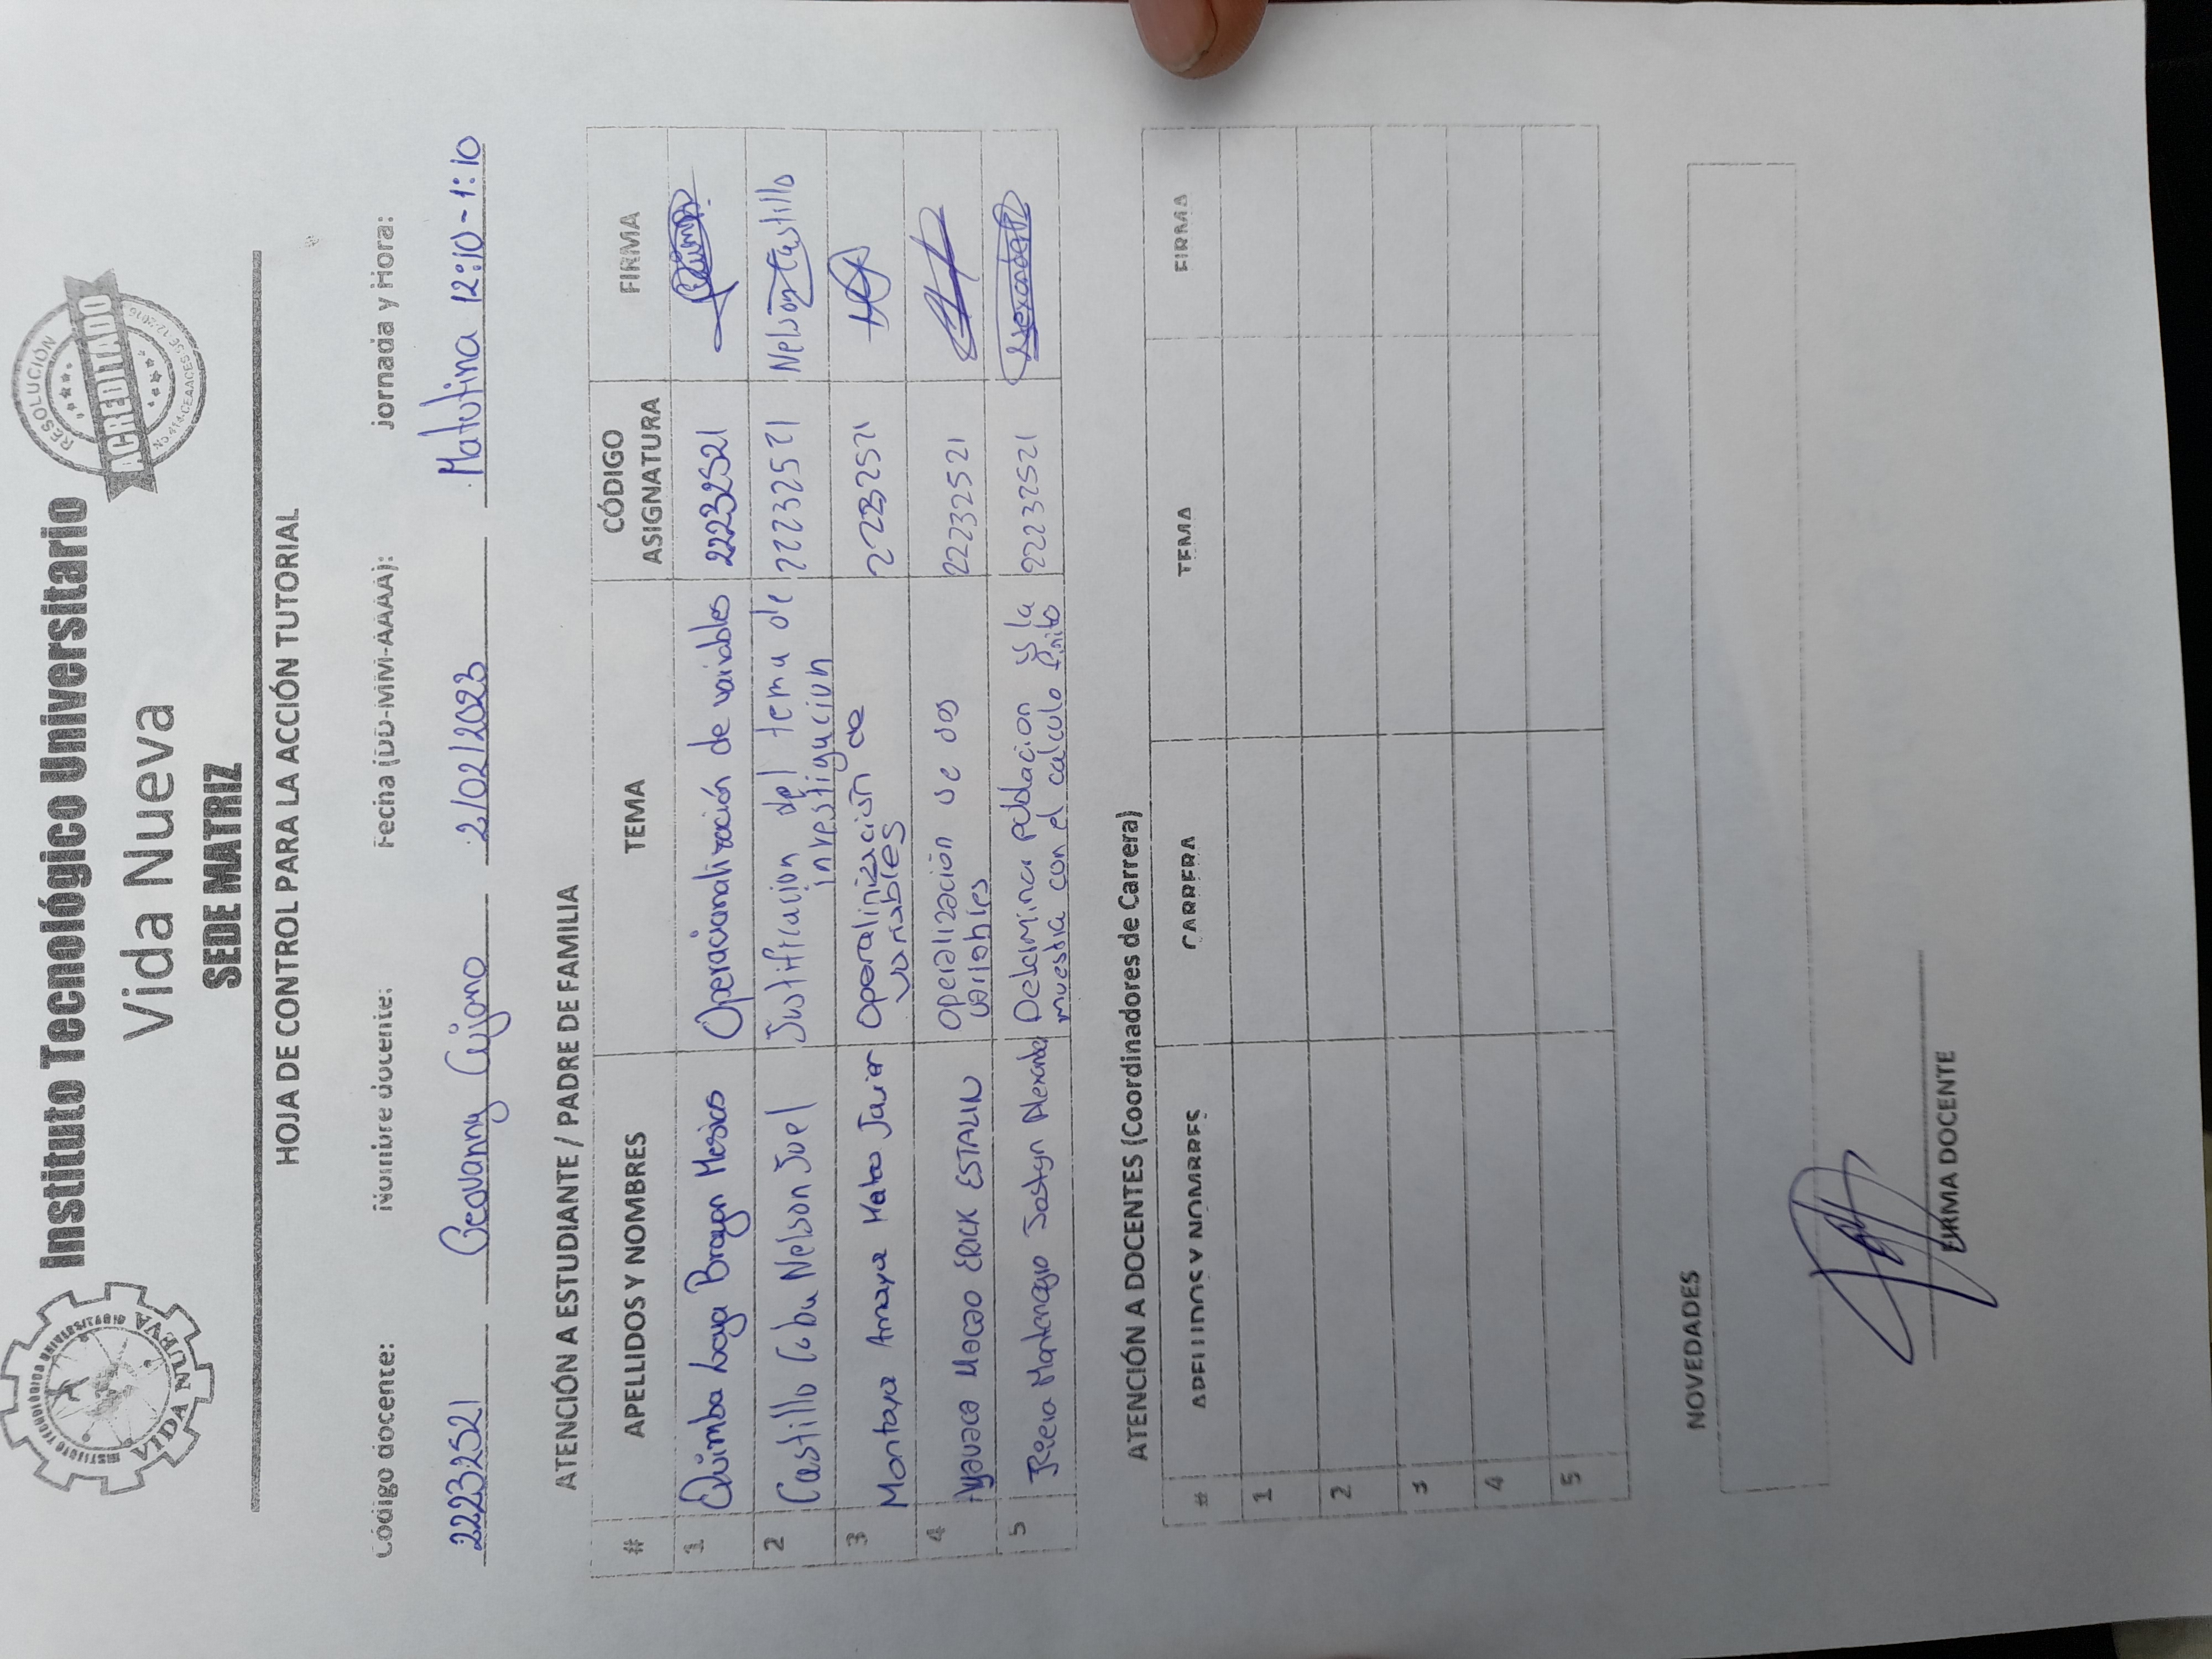 INSTITUTO TECNOLÓGICO UNIVERSITARIO
VIDA NUEVA
Instituto Tecnológico Universitario
Vida Nueva
SEDE MATRIZ
RESOLUCIÓN
ACREDITADO
CEAACES
HOJA DE CONTROL PARA LA ACCIÓN TUTORIAL
Código docente: Nombre docente: Fecha (DD-MM-AAAA): Jornada y Hora:
22232521 Geovanny Cujano 2/02/2023 Matutina 12:10-1:10
ATENCIÓN A ESTUDIANTE / PADRE DE FAMILIA
# APELLIDOS Y NOMBRES TEMA CÓDIGO ASIGNATURA FIRMA
1 Quimba Loya Brayan Mesias Operacionalización de variables 22232521
2 Castillo Coba Nelson Joel Justificacion del tema de 22232521 Nelson Castillo
investigacion
3 Montaya Amaya Mateo Javier Operalinización de 22232521
variables
4 Ayavaca Macao ERICK ESTALIN Operalización de dos 22232521
variables
5 Riera Montenegro Jostyn Alexander Determinar poblacion y la 22232521
muestra con el calculo finito
ATENCIÓN A DOCENTES (Coordinadores de Carrera)
# APELLIDOS Y NOMBRES CARRERA TEMA FIRMA
1
2
3
4
5
NOVEDADES
FIRMA DOCENTE